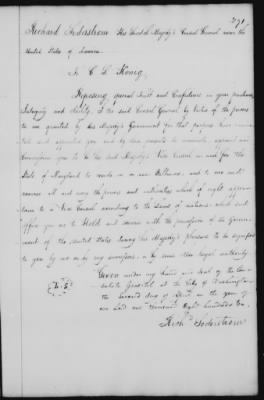 291
Richard Soderstrom His Swedish Majesty's Consul General near the
United States of America
To C L Konig
Reposing special Trust and Confidence in your prudence
Integrity and Ability, I the said Consul General by Virtue of the power
to me granted by his Majesty's Government for that purpose have nomi-
nated and appointed you and by these presents do nominate appoint and
Commission you to be his said Majesty's Vice Consul in and for the
State of Maryland to reside in or near Baltimore and to use and
exercise all and every the powers and authorities which of right apper-
tains to a Vice Consul according to the Laws of nations which said
office you are to Hold and exercise with the permission of the Govern-
ment of the United States During his Majesty's pleasure to be signified
to you by me or by my successors or by some other legal authority.
Given under my hand and Seal of the Con-
L.S
sulate General at the City of Washington
the Second day of April in the year of
our Lord one thousand Eight hundred & 
Richd Soderstrom